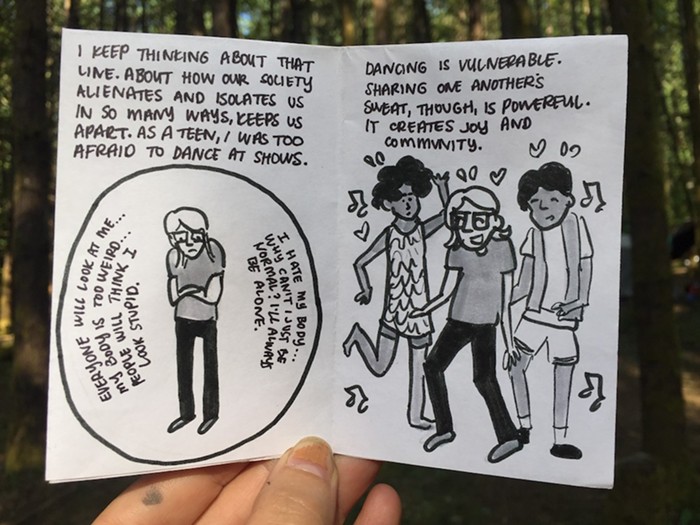 I KEEP THINKING ABOUT THAT
LINE. ABOUT HOW OUR SOCIETY
ALIENATES AND ISOLATES US
IN SO MANY WAYS, KEEPS US
APART. AS A TEEN, I WAS TOO
AFRAID TO DANCE AT SHOWS.
EVERYONE WILL LOOK AT ME...
MY BODY IS TOO WEIRD...
PEOPLE WILL THINK I
LOOK STUPID.
I HATE MY BODY...
WHY CAN'T I JUST BE
NORMAL? I'LL ALWAYS
BE ALONE.
DANCING IS VULNERABLE.
SHARING ONE ANOTHER'S
SWEAT, THOUGH, IS POWERFUL.
IT CREATES JOY AND
COMMUNITY.